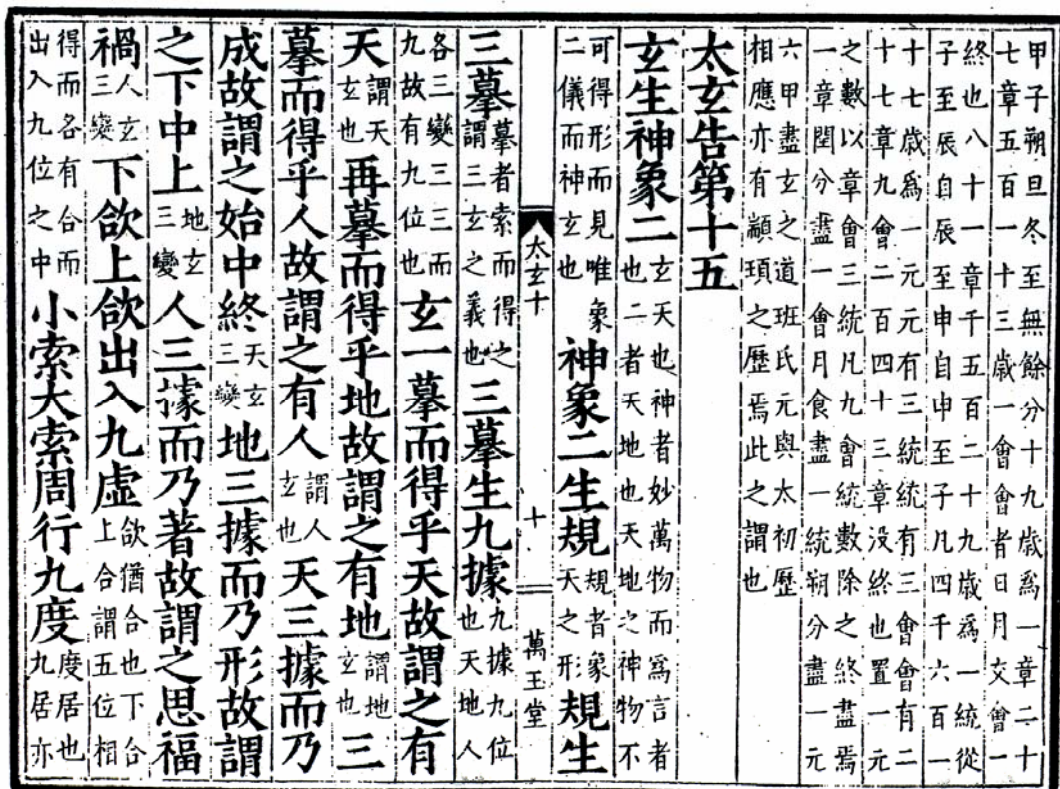 甲子朔旦冬至無餘分十九歲爲一章二十
七章五百一十三歲一會會者日月交會一
終也八十一章千五百二十九歲爲一統從
子至辰自辰至申自申至子凡四千六百一
十七歲爲一元元有三統統有三會會有二
十七章九會二百四十三章没終也置一元
之數以章會三統凡九會統數除之終盡焉
一章閏分盡一會月食盡一統朔分盡一元
六甲盡玄之道班氏元與太初歷
相應亦有顓頊之歷焉此之謂也
太玄告第十五
玄生神象二玄天也神者妙萬物而爲言者也二者天地也天地之神物不
可得形而見唯象二儀而神玄也神象二生規規者象天之形規生
太玄十 十 萬玉堂
三摹摹者索而得之謂三玄之義也三摹生九據九據九位也天地人
各三變三三而九故有九位也玄一摹而得乎天故謂之有
天謂天玄也再摹而得乎地故謂之有地謂地玄也三
摹而得乎人故謂之有人謂人玄也天三據而乃
成故謂之始中終天玄三變地三據而乃形故謂
之下中上地玄三變人三據而乃著故謂之思福
禍人玄三變下欱上欱出入九虛欱猶合也下合上合謂五位相
得而各有合而出入九位之中小索大索周行九度度居也九居亦